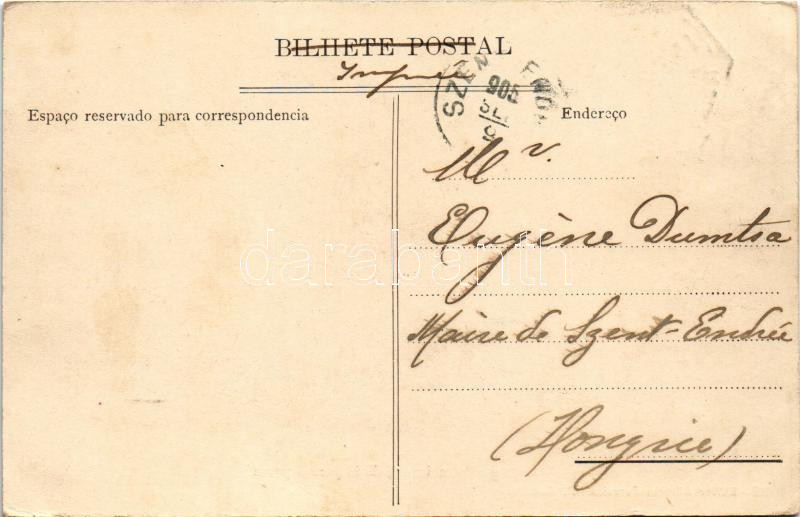 BILHETE POSTAL
SZEN ENDR
905
SEP
9
Espaço reservado para correspondencia
Endereço
Mr.
Eugène Dumtsa
Maire de Szent-Endrée
(Hongrie)
darabanth